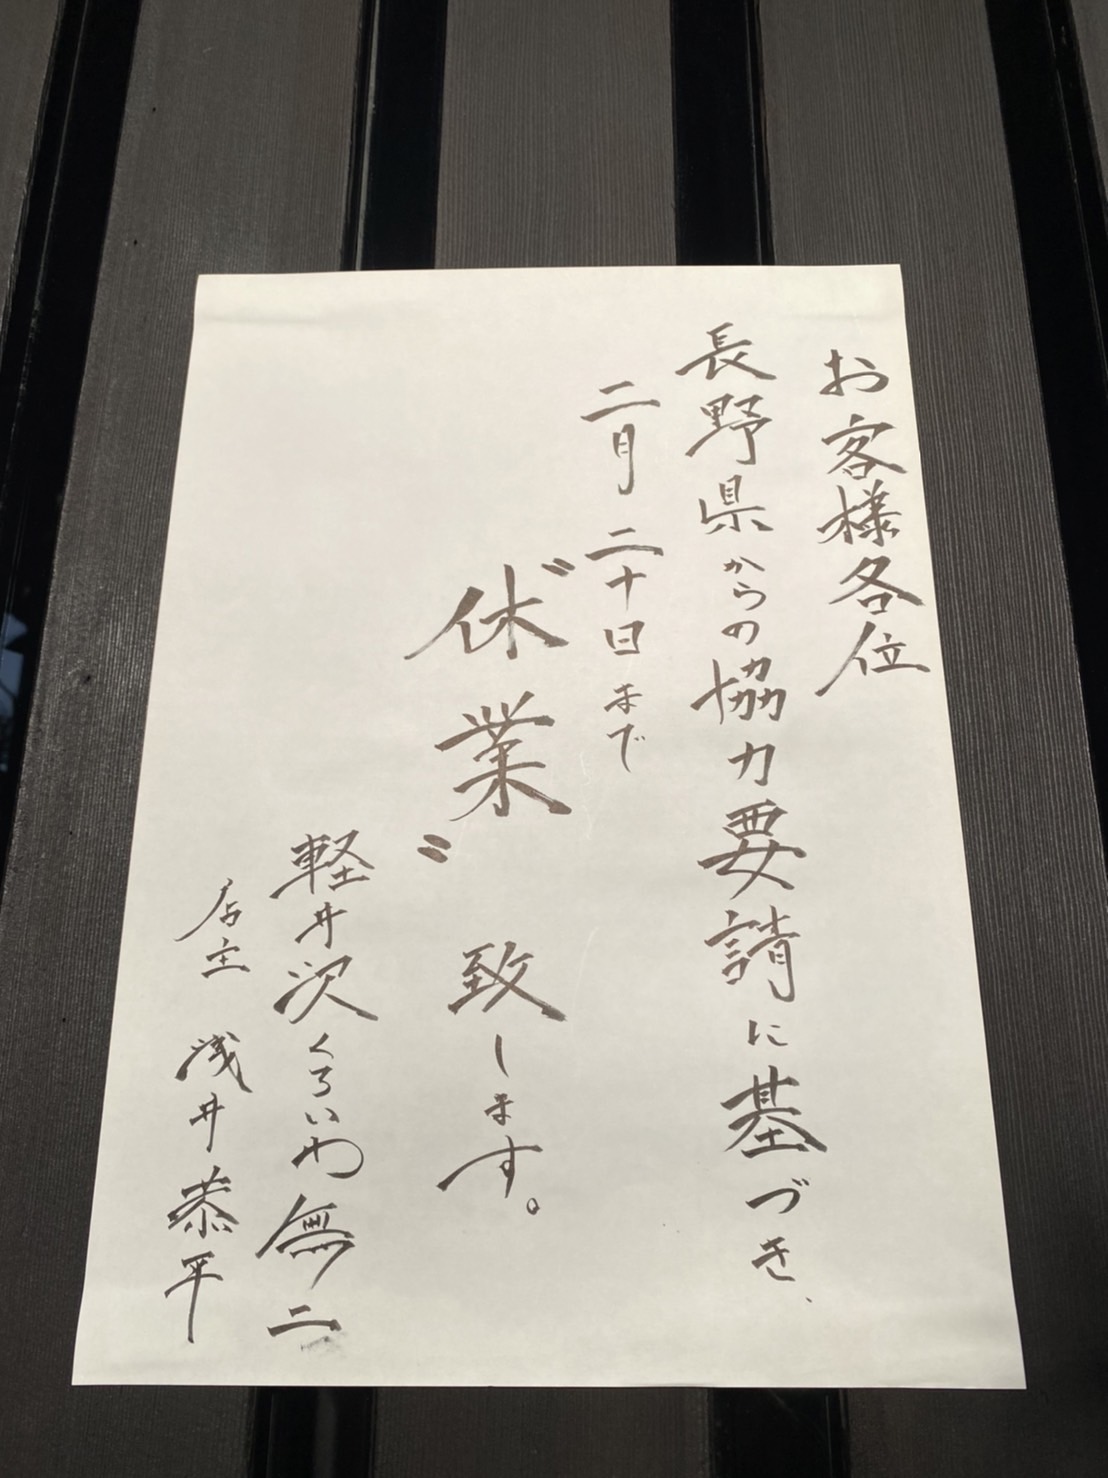 お客様各位
長野県からの協力要請に基づき、
二月二十日まで
〝休業〟致します。
軽井沢くろいわ無二
店主 浅井恭平